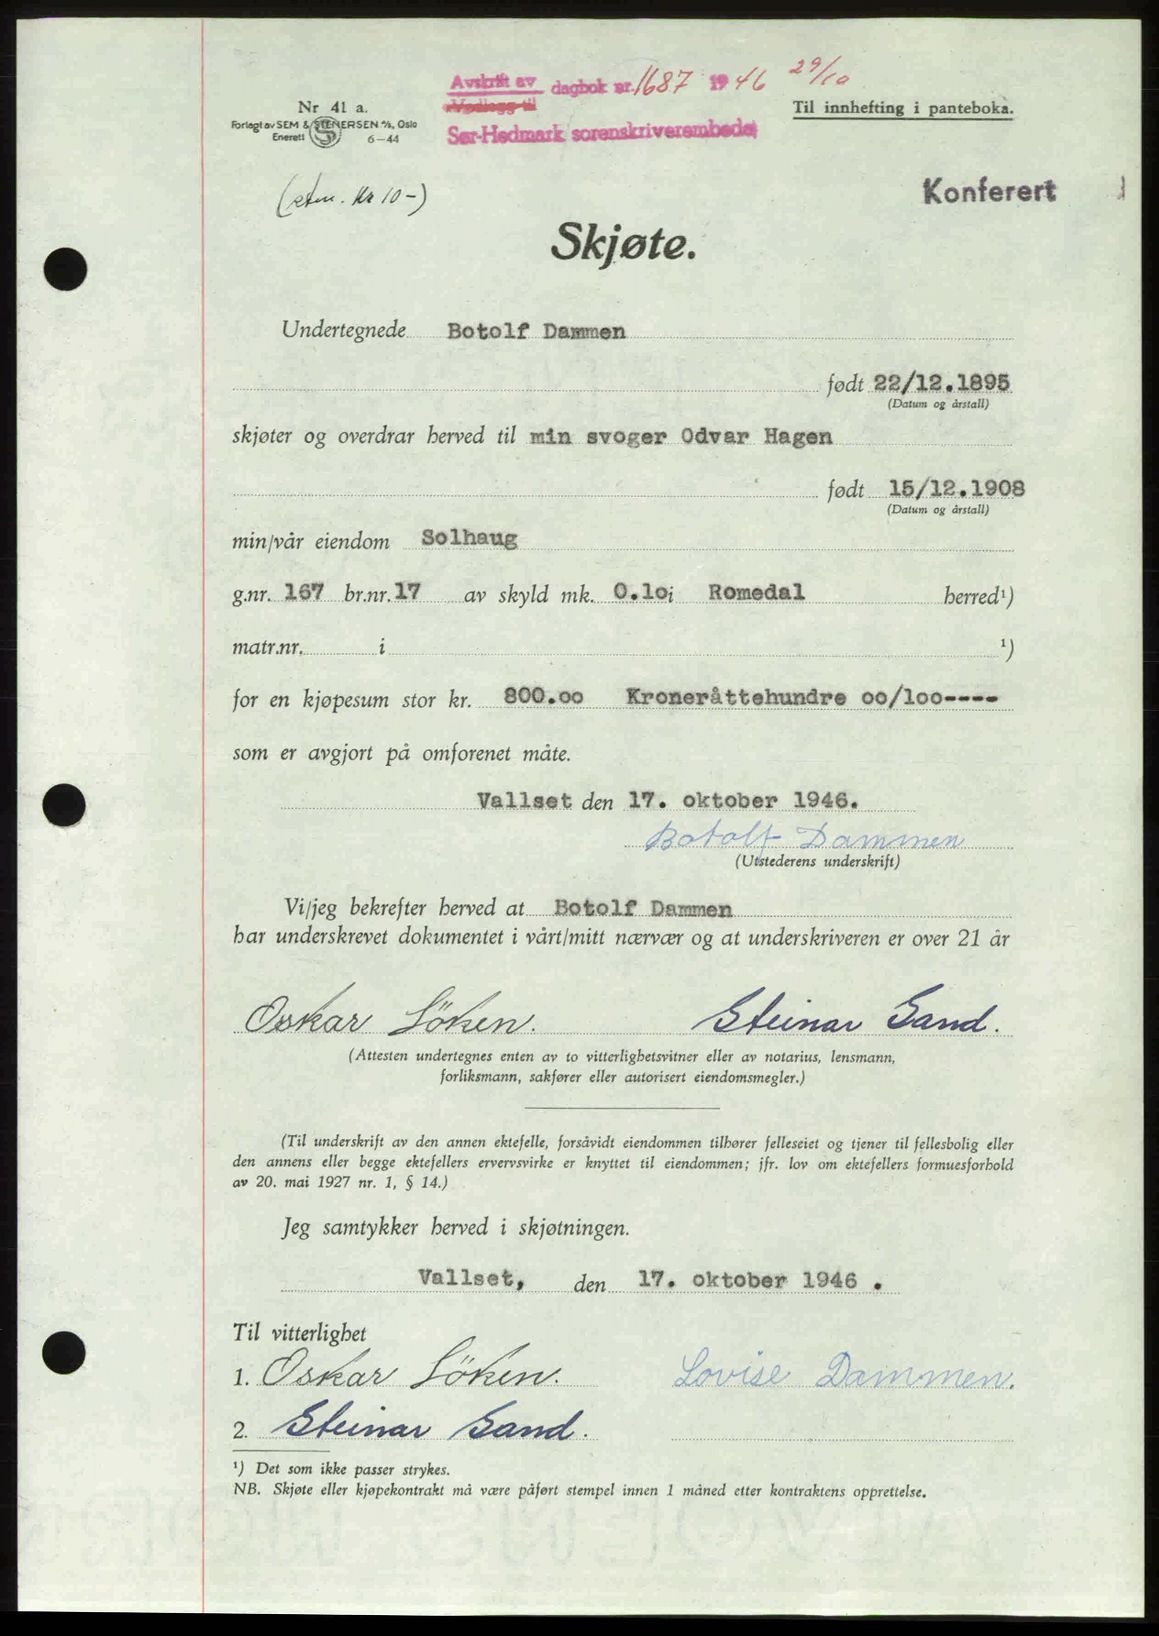 Avskrift av dagbok nr. 1687 1946 29/10
Vedlegg til
Sør-Hedmark sorenskriverembede
Nr 41 a.
Forlagt av SEM & STENERSEN A/S, Oslo
Enerett 6-44
Til innhefting i panteboka.
(stem. Kr 10-)
Konferert
Skjøte.
Undertegnede Botolf Dammen
født 22/12.1895
(Datum og årstall)
skjøter og overdrar herved til min svoger Odvar Hagen
født 15/12.1908
(Datum og årstall)
min/vår eiendom Solhaug
g.nr. 167 br.nr. 17 av skyld mk. 0.lo i Romedal herred¹)
matr.nr. i ¹)
for en kjøpesum stor kr. 800.oo Kroneråttehundre oo/loo----
som er avgjort på omforenet måte.
Vallset den 17. oktober 1946.
Botolf Dammen
(Utstederens underskrift)
Vi/jeg bekrefter herved at Botolf Dammen
har underskrevet dokumentet i vårt/mitt nærvær og at underskriveren er over 21 år
Oskar Löken. Steinar Sand.
(Attesten undertegnes enten av to vitterlighetsvitner eller av notarius, lensmann,
forliksmann, sakfører eller autorisert eiendomsmegler.)
(Til underskrift av den annen ektefelle, forsåvidt eiendommen tilhører felleseiet og tjener til fellesbolig eller
den annens eller begge ektefellers ervervsvirke er knyttet til eiendommen; jfr. lov om ektefellers formuesforhold
av 20. mai 1927 nr. 1, § 14.)
Jeg samtykker herved i skjøtningen.
Vallset, den 17. oktober 1946 .
Til vitterlighet
1. Oskar Löken. Lovise Dammen.
2. Steinar Sand.
¹) Det som ikke passer strykes.
NB. Skjøte eller kjøpekontrakt må være påført stempel innen 1 måned etter kontraktens opprettelse.